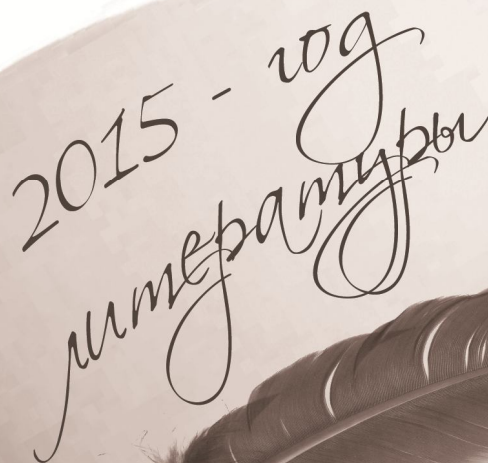 2015 - год
литературы